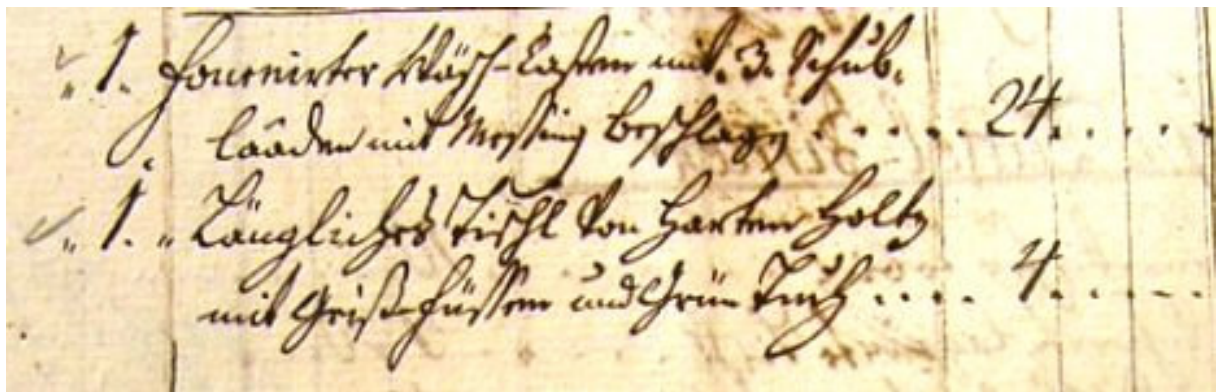 1. fournirter Wäsch-Casten mit 3. Schub-
lääden mit Messing beschlagen ..... 24. . . . .
1. Längliches Tischl von harten Holtz
mit Geiß-füssen und Grün Tuch .... 4. . . . .